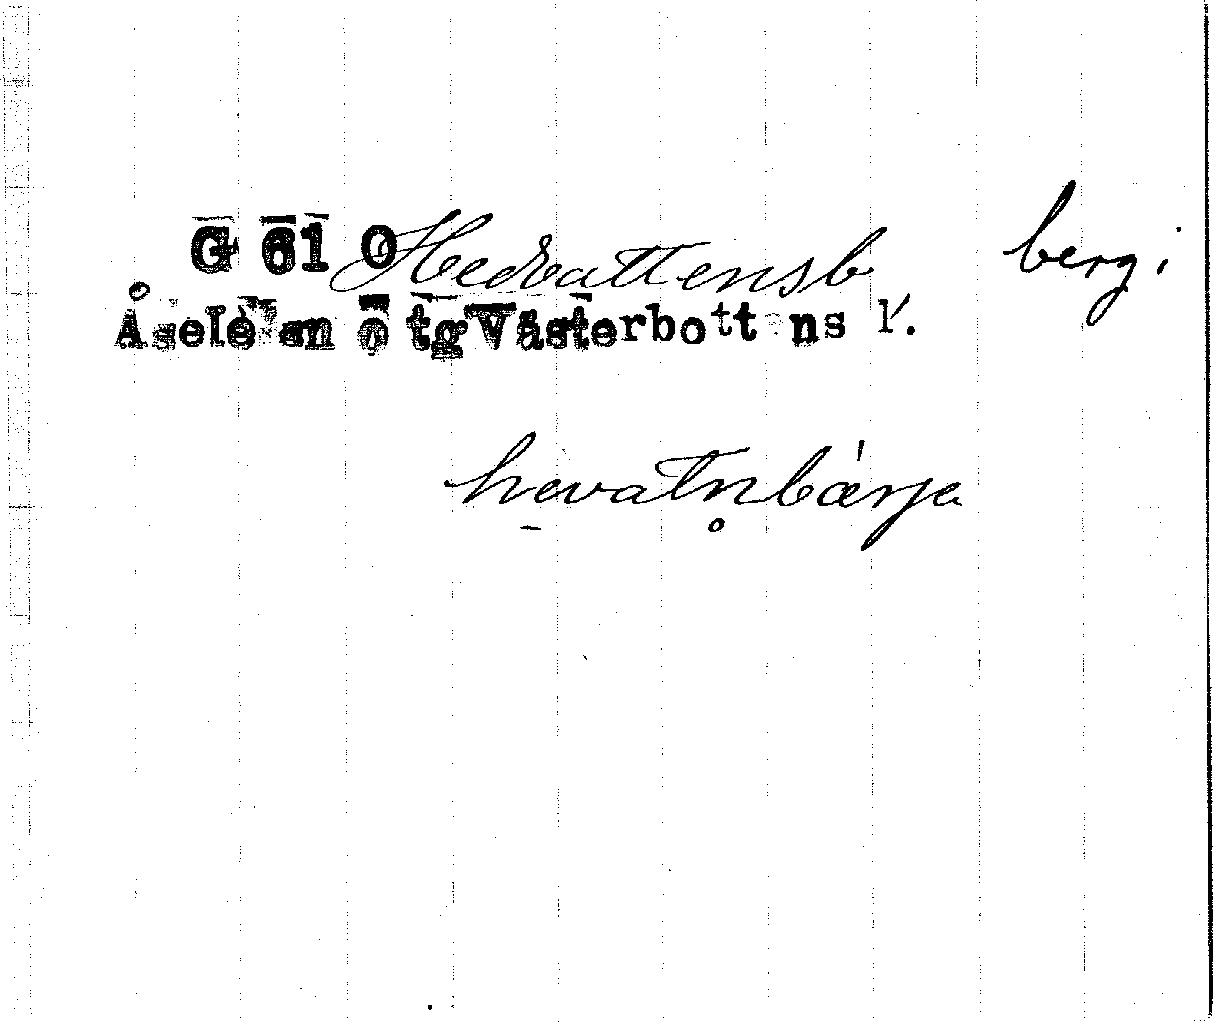 G 61 0 Hedvattensb berg;
Åsele sn o tg Västerbottens l.
hevatn̥bærja